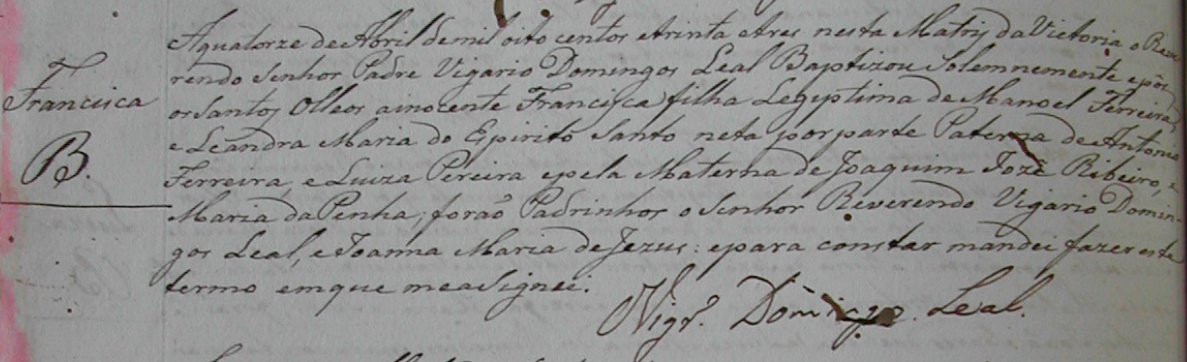 Aquatorze de Abril de mil oito centos etrinta etres nesta Matriz da Victoria o Reve
rendo Senhor Padre Vigario Domingos Leal Baptizou Solemnemente epôs
os Santos Olleos ainocente Francisca filha Legiptima de Manoel Ferreira
e Leandra Maria do Espirito Santo neta por parte Paterna de Antonio
Ferreira, e Luiza Pereira epela Materna de Joaquim Jozé Ribeiro, e
Maria da Penha; forão Padrinhos o Senhor Reverendo Vigario Domin-
gos Leal, e Joanna Maria de Jezus: epara constar mandei fazer este
termo emque meaSignei.
Vigr.º Domingos Leal.
Francisca
B.